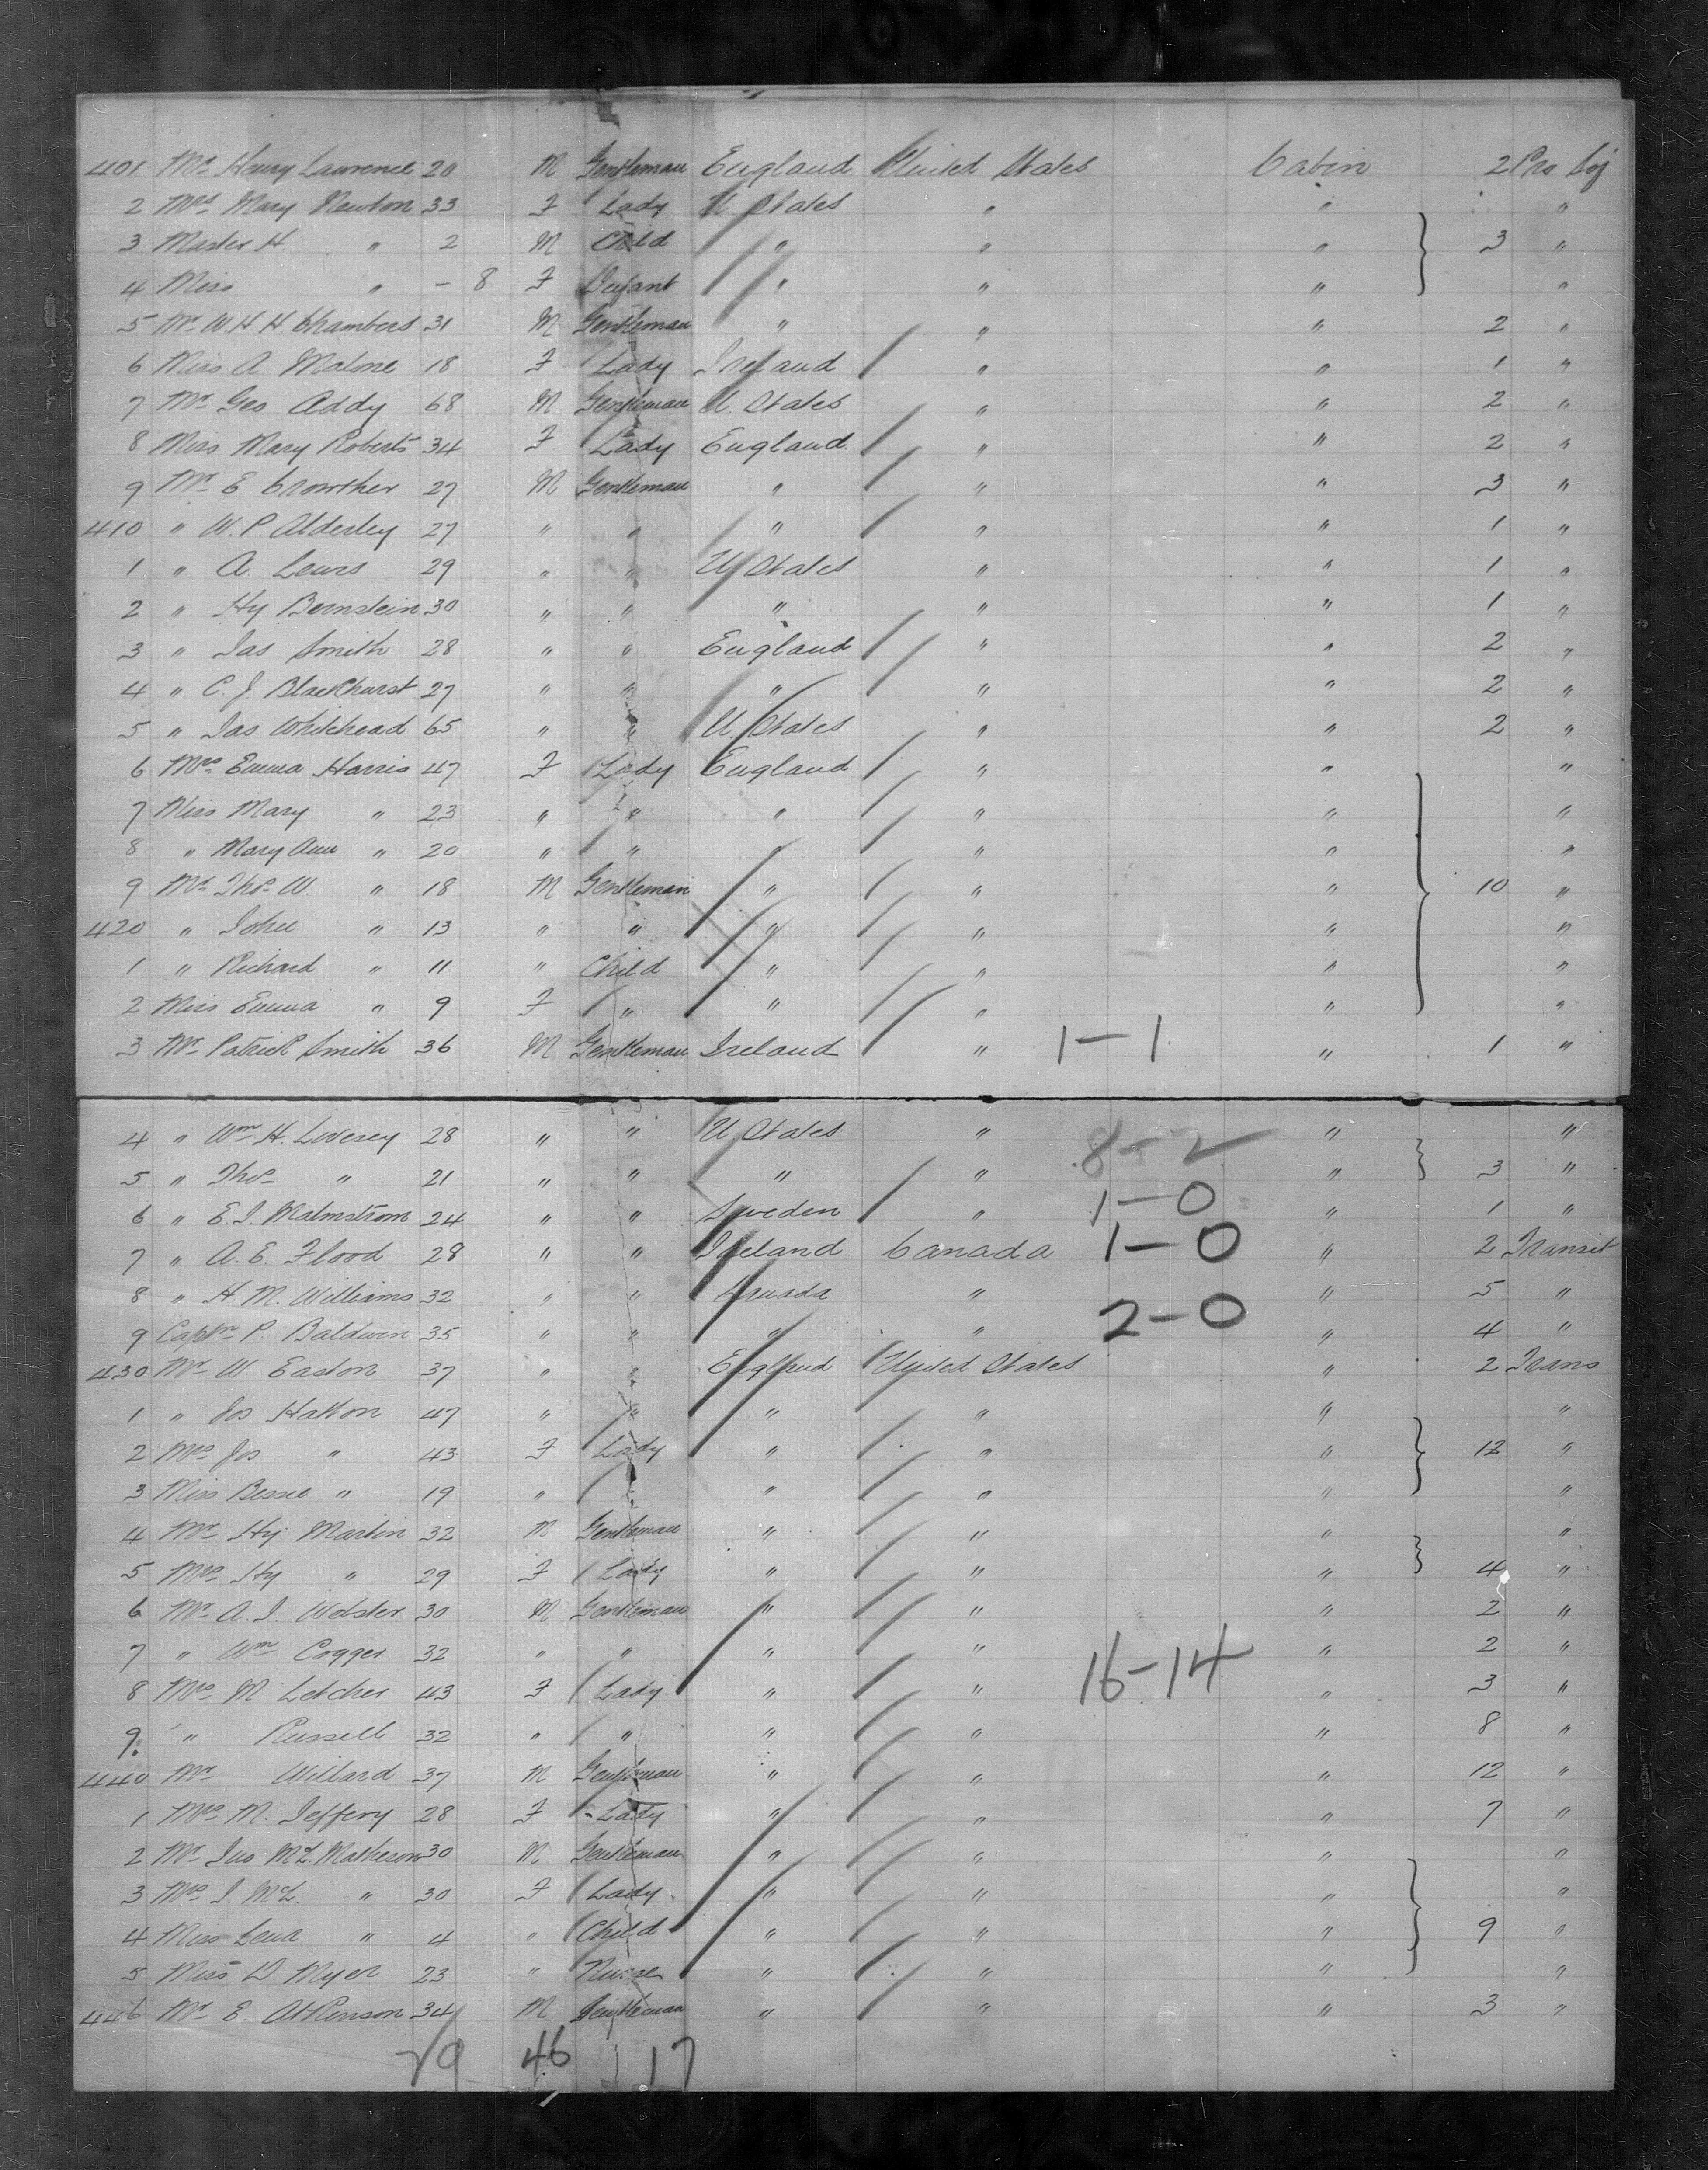 401 Mr Henry Lawrence 20 M Gentleman England United States Cabin 2 Pro Soj
2 Mrs Mary Newton 33 F Lady U. States " " "
3 Master H. " 2 M Child " " " 3 "
4 Miss " - 8 F Infant " " " "
5 Mr W. H. H. Chambers 31 M Gentleman " " " 2 "
6 Miss A Malone 18 F Lady Ireland " " 1 "
7 Mr Geo Addy 68 M Gentleman U. States " " 2 "
8 Miss Mary Roberts 34 F Lady England " " 2 "
9 Mr E Crowther 27 M Gentleman " " " 3 "
410 " W. P. Alderley 27 " " " " " 1 "
1 " A Lewis 29 " " U States " " 1 "
2 " Hy Bernstein 30 " " " " " 1 "
3 " Jas Smith 28 " " England " " 2 "
4 " C. J. Blackhurst 27 " " " " " 2 "
5 " Jas Whitehead 65 " " U. States " " 2 "
6 Mrs Emma Harris 47 F Lady England " " "
7 Miss Mary " 23 " " " " " "
8 " Mary Ann " 20 " " " " " "
9 Mr Thos W. " 18 M Gentleman " " " 10 "
420 " John " 13 " " " " " "
1 " Richard " 11 " Child " " " "
2 Miss Emma " 9 F " " " " "
3 Mr Patrick Smith 36 M Gentleman Ireland " 1-1 " 1 "
4 " Wm H. Livesey 28 " " U States " 8-2 " "
5 " Thos " 21 " " " " " 3 "
6 " E. J. Malmstrom 24 " " Sweden " 1-0 " 1 "
7 " A. E. Flood 28 " " Ireland Canada 1-0 " 2 Transit
8 " H. M. Williams 32 " " Canada " " 5 "
9 Captn P. Baldwin 35 " " " " 2-0 " 4 "
430 Mr W Easton 37 " " England United States " 2 Trans
1 " Jos Hatton 47 " " " " " "
2 Mrs Jos " 43 F Lady " " " 12 "
3 Miss Bessie " 19 " " " " "
4 Mr Hy Martin 32 M Gentleman " " " "
5 Mrs Hy " 29 F Lady " " " 4 "
6 Mr A. J. Webster 30 M Gentleman " " " 2 "
7 " Wm Cogger 32 " " " " " 2 "
8 Mrs M Letcher 43 F Lady " " 16-14 " 3 "
9 " Russell 32 " " " " " 8 "
440 Mr Willard 37 M Gentleman " " " 12 "
1 Mrs M. Jeffery 28 F Lady " " " 7 "
2 Mr Jno McL Matheson 30 M Gentleman " " " "
3 Mrs J. McL " 30 F Lady " " " "
4 Miss Lena " 4 " Child " " " 9 "
5 Miss D Myer 23 " Nurse " " " "
446 Mr E. Atkinson 34 M Gentleman " " " 3 "
29 46 17